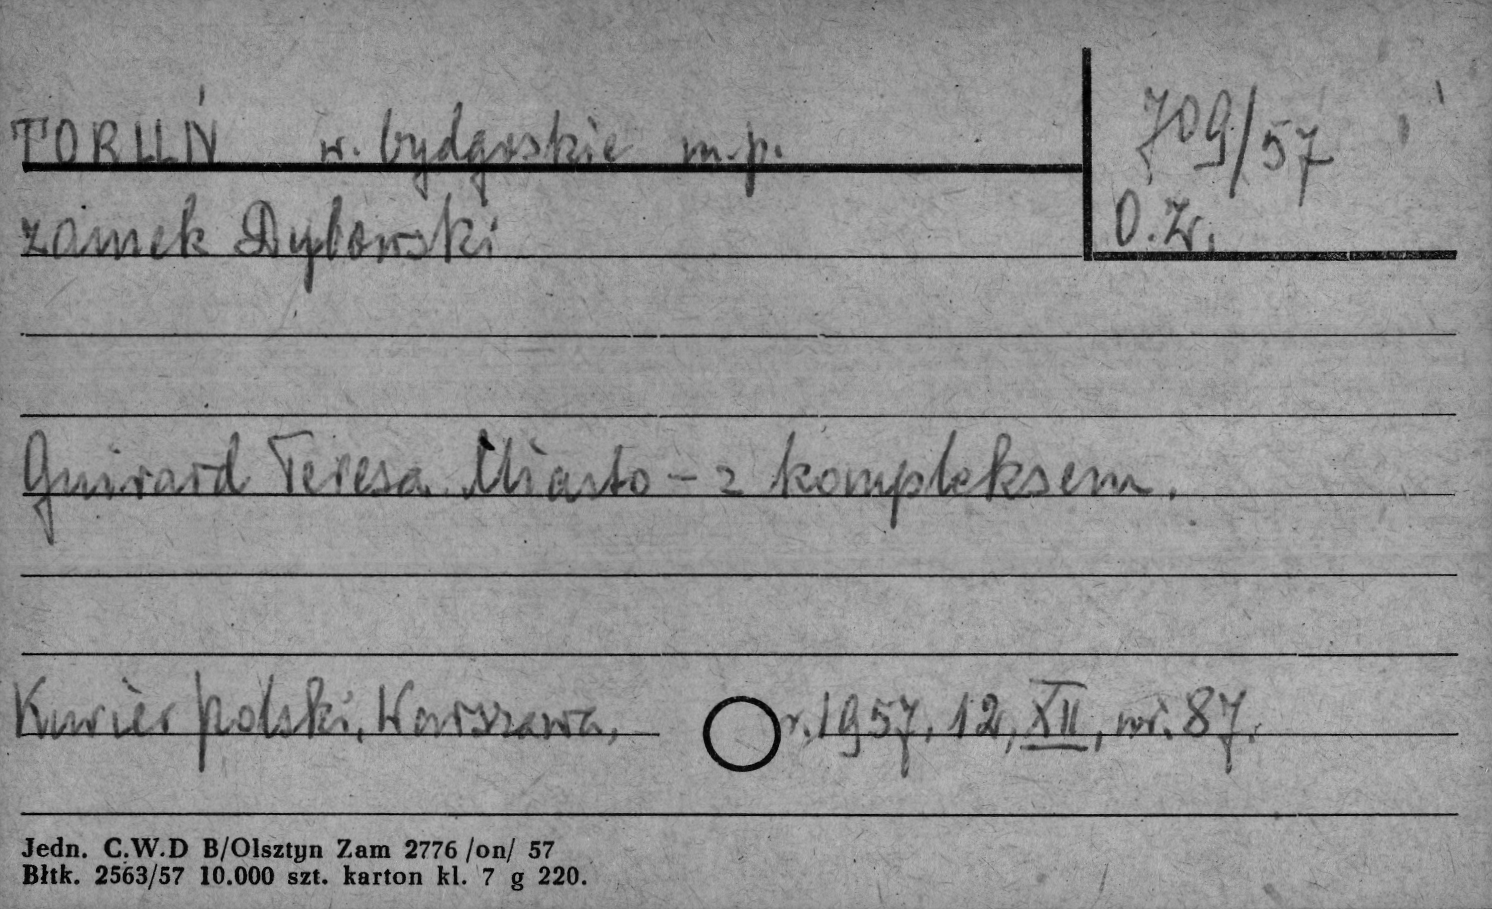 TORUŃ w. bydgoskie m.p.
709/57
zamek Dybowski
O.Zr.
Guirard Teresa. Miasto – z kompleksem.
Kurier polski, Warszawa, r. 1957, 12, XII, nr. 87.
Jedn. C.W.D B/Olsztyn Zam 2776 /on/ 57
Błtk. 2563/57 10.000 szt. karton kl. 7 g 220.